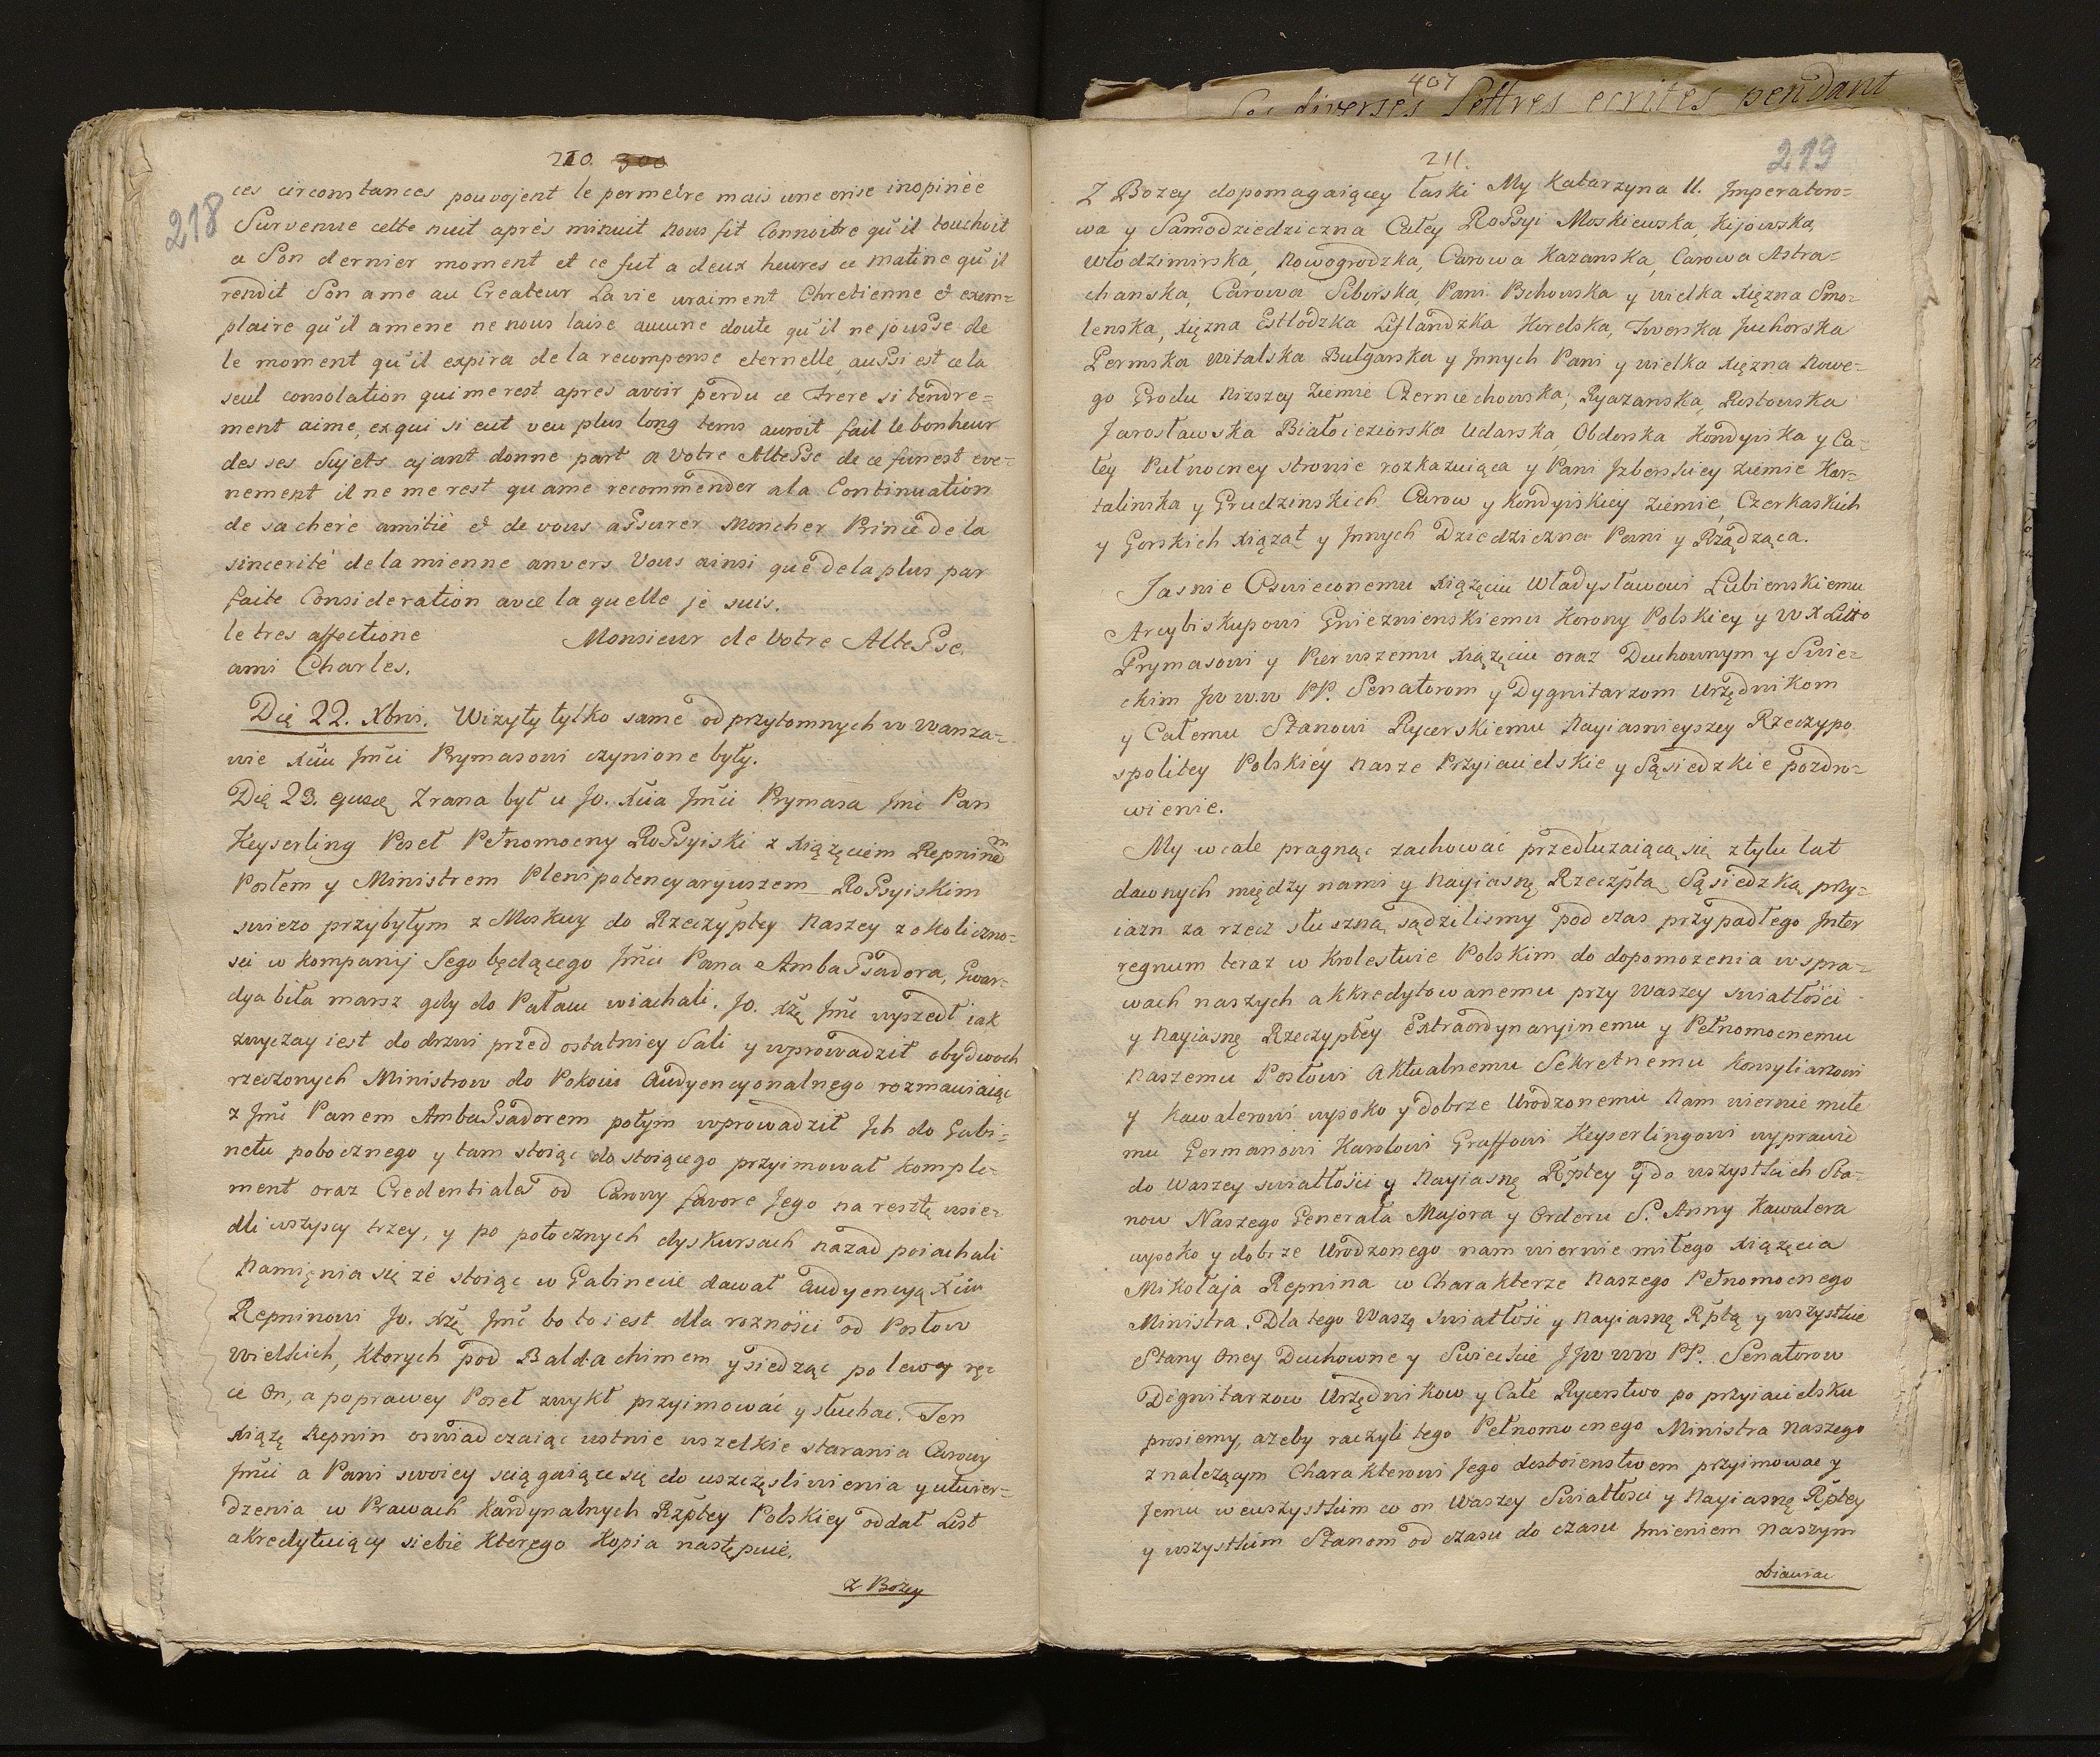 210. 300
218
ces circonstances pouvojent le permetre mais une crise inopinée
Survenue cette nuit aprés minuit nous fit Connoitre qu'il touchoit
a Son dernier moment et ce fut a deux heures ce matine qu'il
rendit Son ame au Createur La vie vraiment Chretienne et exem=
plaire qu'il amene ne nous laise aucune doute qu'il ne jousse de
le moment qu'il expira de la recompense eternelle, aussi est cela
seul consolation qui me rest apres avoir perdu ce Frere si tendre=
ment aime, ex qui si eut veu plus long tems auroit fait le bonheur
des ses Sujets ajant donne part a Votre Altesse de ce funest eve=
nement il ne me rest qu'ame recommender ala Continuation
de sa cheré amitié et de vous assurer Moncher Prince de la
sincerité de la mienne anvers Vous ainsi que de la plus par
faite Consideration avec la quelle je suis.
le tres affectione Monsieur de Votre Altesse.
ami Charles.
Dię 22. Xbris. Wizyty tylko same od przytomnych w Warsza=
wie Xciu Jmći Prymasowi czynione były.
Dię 23. ejusdę Zrana był u Jo. Xcia Jmći Prymasa Jmć Pan
Keyserling Poseł Pełnomocny Rossyiski z Xiążęciem Repninem
Posłem y Ministrem Plenipotencyaryuszem Rossyiskim
swiezo przybyłym z Moskwy do Rzeczyptey Naszey z okoliczno=
sci w kompanij Jego będącego Jmći Pana Ambassadora, Gwar=
dya biła marsz gdy do Pałacu wiachali. Jo. Xżę Jmć wyszedł iak
zwyczay iest do drzwi przed ostatniey Sali y wprowadził obydwoch
rzeczonych Ministrow do Pokoiu Audyencyonalnego rozmawiaiąc
z Jmć Panem Ambassadorem potym wprowadził Jch do Gabi=
netu pobocznego y tam stoiąc do stoiącego przyimował komple=
ment oraz Credentiales od Carowy favore Jego na resztę usie=
dli wszyscy trzey, y po potocznych dyskursach nazad poiachali
Namięnia się że stoiąc w Gabinecie dawał Audyencyą Xciu
Repninowi Jo. Xżę Jmć bo to iest dla roznosci od Posłow
Wielkich, ktorych pod Baldachimem y siedząc po lewey rę=
ce On, a po prawey Poseł zwykł przyimować y słuchac. Ten
Xiążę Repnin oswiadczaiąc ustnie wszelkie starania Carowy
Jmći a Pani swoiey sciągaiące się do uszczęsliwienia y utwier=
dzenia w Prawach Kardynalnych Rzptey Polskiey oddał List
akredytuiący siebie Ktorego Kopia następuie.
z Bożey
407
les diverses Lettres ecrites pendant
211.
219
Z Bozey dopomagaiącey łaski My Katarzyna II. Jmperatoro=
wa y Samodziedziczna Całey Rossyi Moskiewska, Kijowska,
Włodzimirska, Nowogrodzka, Carowa Kazanska, Carowa Astra=
chanska, Carowa Sibirska, Pani Pschowska y wielka Xiężna Smo=
lenska, Xiężna Estlodzka Liflandzka Korelska, Twerska Juhorska
Permska Witalska Bulgarska y Jnnych Pani y wielka Xiężna Nowe=
go Grodu Niższey Ziemie Czerniechowska, Ryazanska, Rostowska
Jarosławska Białoiezierska Udarska, Obdorska Kondyiska y Ca=
łey Pułnocney stronie rozkazuiąca y Pani Jzberskiey ziemie Kar=
talinska y Grudzinskich Carow y Kondyiskiey ziemie, Czerkaskich
y Gorskich Xiążąt y Jnnych Dziedziczna Pani y Rządząca.
Jasnie Oswieconemu Xiążęciu Władysławowi Łubienskiemu
Arcybiskupowi Gnieznienskiemu Korony Polskiey y W X Litto
Prymasowi y Pierwszemu Xiążęciu oraz Duchownym y Swie=
ckim Jw w.w PP. Senatorom y Dygnitarzom Urzędnikom
y Całemu Stanowi Rycerskiemu Nayiasnieyszey Rzeczypo
spolitey Polskiéy Nasze Przyiacielskie y Sąsiedzkie pozdro=
wienie.
My wcale pragnąc zachować przedłuzaiącą się z tylu lat
dawnych między nami y Nayiasnę Rzeczptą Sąsiedzką przy=
iazn za rzecz słuszną sądzilismy pod czas przypadłego Jnter
ręgnum teraz w Krolestwie Polskim do dopomożenia w spra=
wach naszych akkredytowanemu przy Waszey swiatłości
y Nayiasnę Rzeczyptey Extraordynaryinemu y Pełnomocnemu
Naszemu Posłowi Aktualnemu Sekretnemu Konsyliarzowi
y Kawalerowi wysoko y dobrze Urodzonemu Nam wiernie miłe
mu Germanowi Karolowi Graffowi Keyserlingowi wyprawić
do Waszey swiatłości y Nayiasnę Rptey y do wszystkich Sta=
now Naszego Generała Majora y Orderu S. Anny Kawalera
wysoko y dobrze Urodzonego nam wiernie miłego Xiążęcia
Mikołaja Repnina w Charakterze Naszego Pełnomocnego
Ministra. Dla tego Waszą swiatłość y Nayiasnę Rptą y wszystkie
Stany Oney Duchowne y Swieckie JJw ww PP. Senatorow
Dignitarzow Urzędnikow y Całe Rycerstwo po przyiacielsku
prosiemy, azeby raczyli tego Pełnomocnego Ministra Naszego
z nalezącym Charakterowi Jego dostoienstwem przyimowac y
Jemu we wszystkim co on Waszey Swiatłości y Nayiasnę Rptey
y wszystkim Stanom od czasu do czasu Jmieniem Naszym
obiawiac